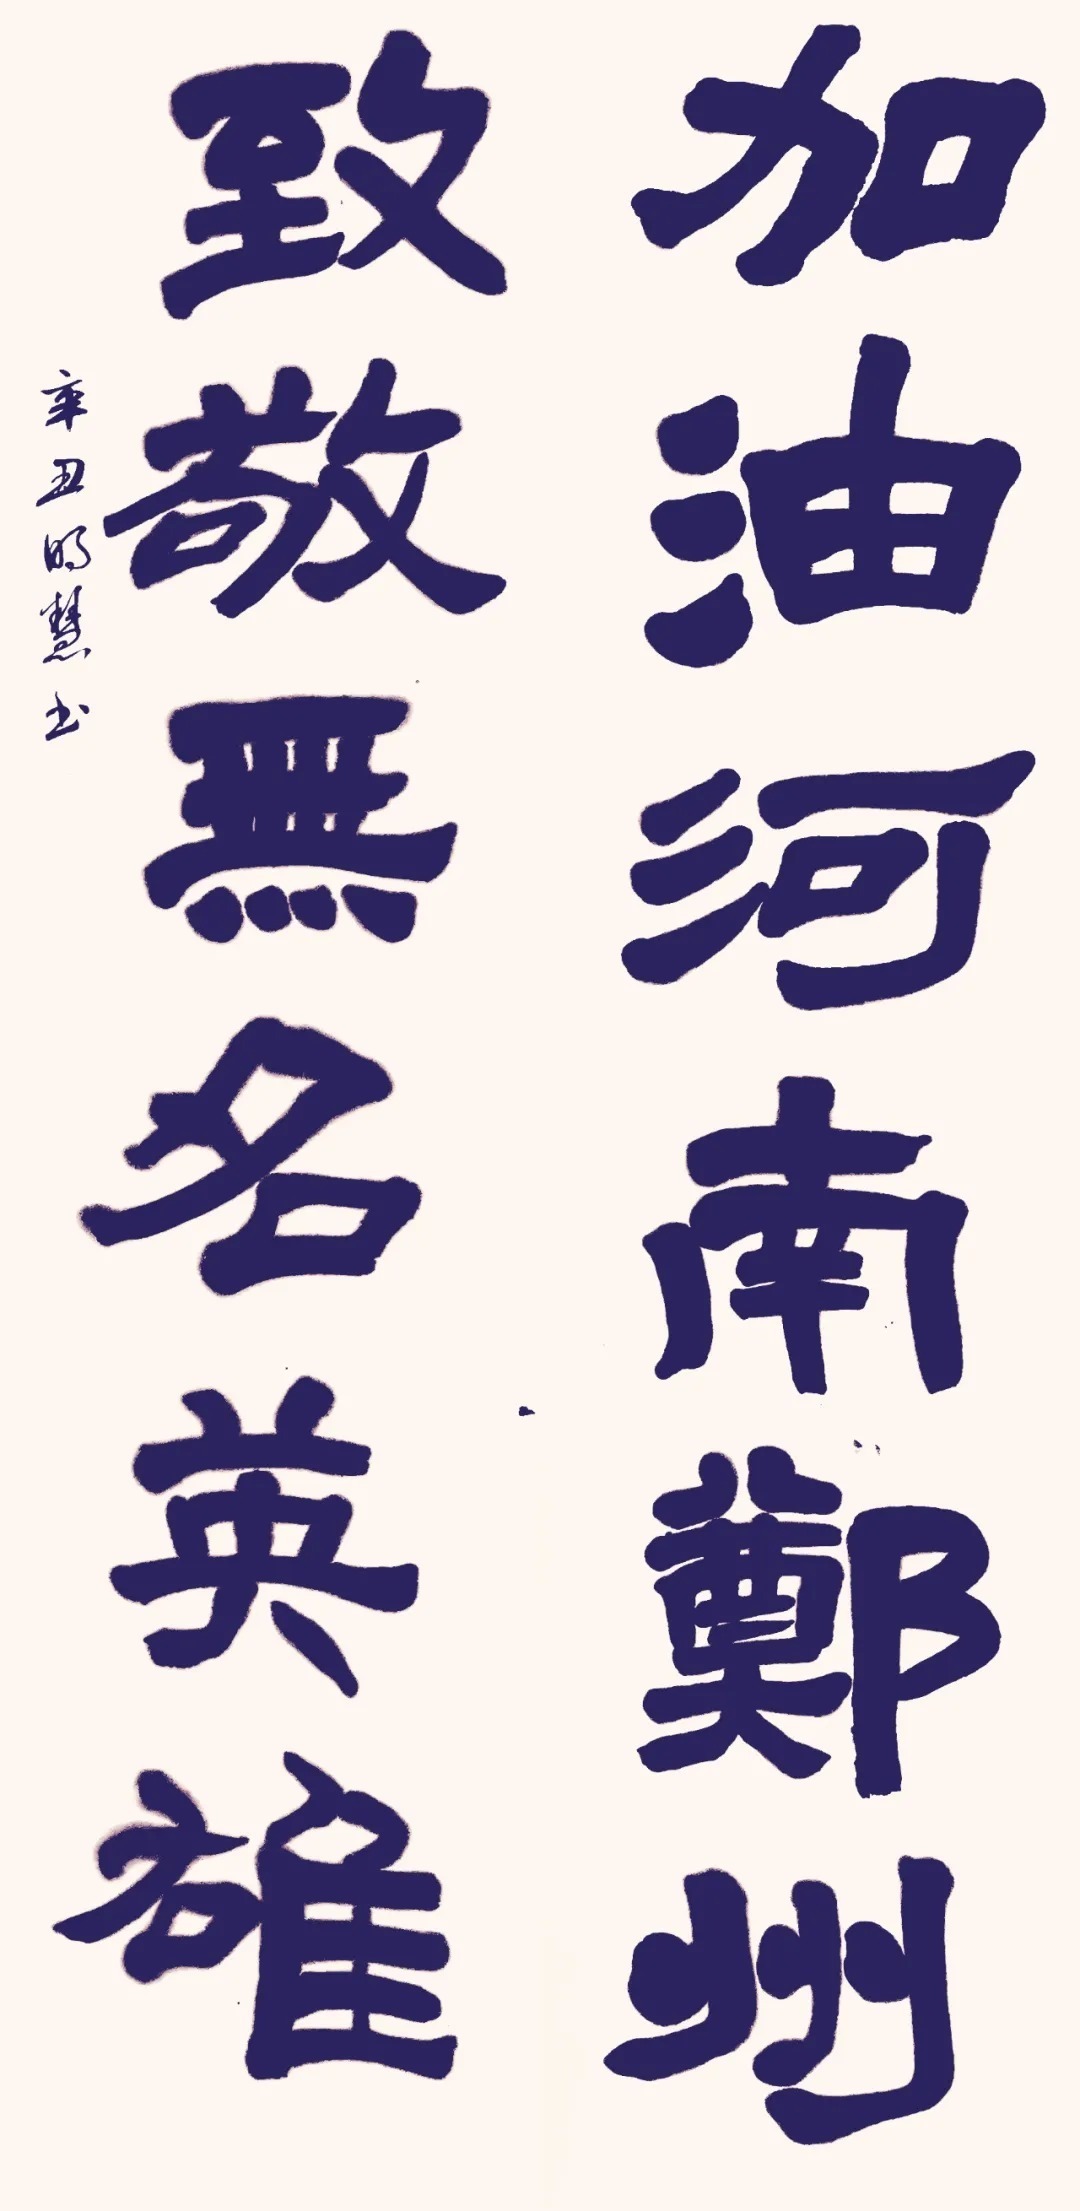 加油河南鄭州
致敬無名英雄
辛丑明慧书